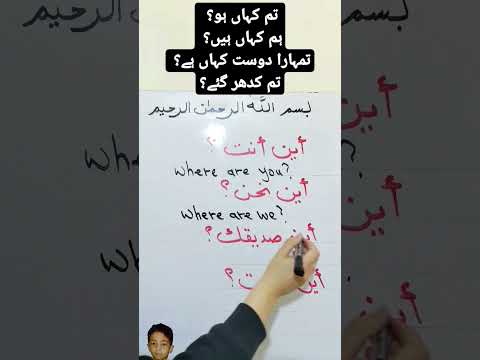 تم کہاں ہو؟
ہم کہاں ہیں؟
تمہارا دوست کہاں ہے؟
تم کدھر گئے؟
بسم اللَّه الرحمٰن الرحيم
أين أنت ؟
where are you?
أين نحن؟
where are we?
أين صديقك؟
أين